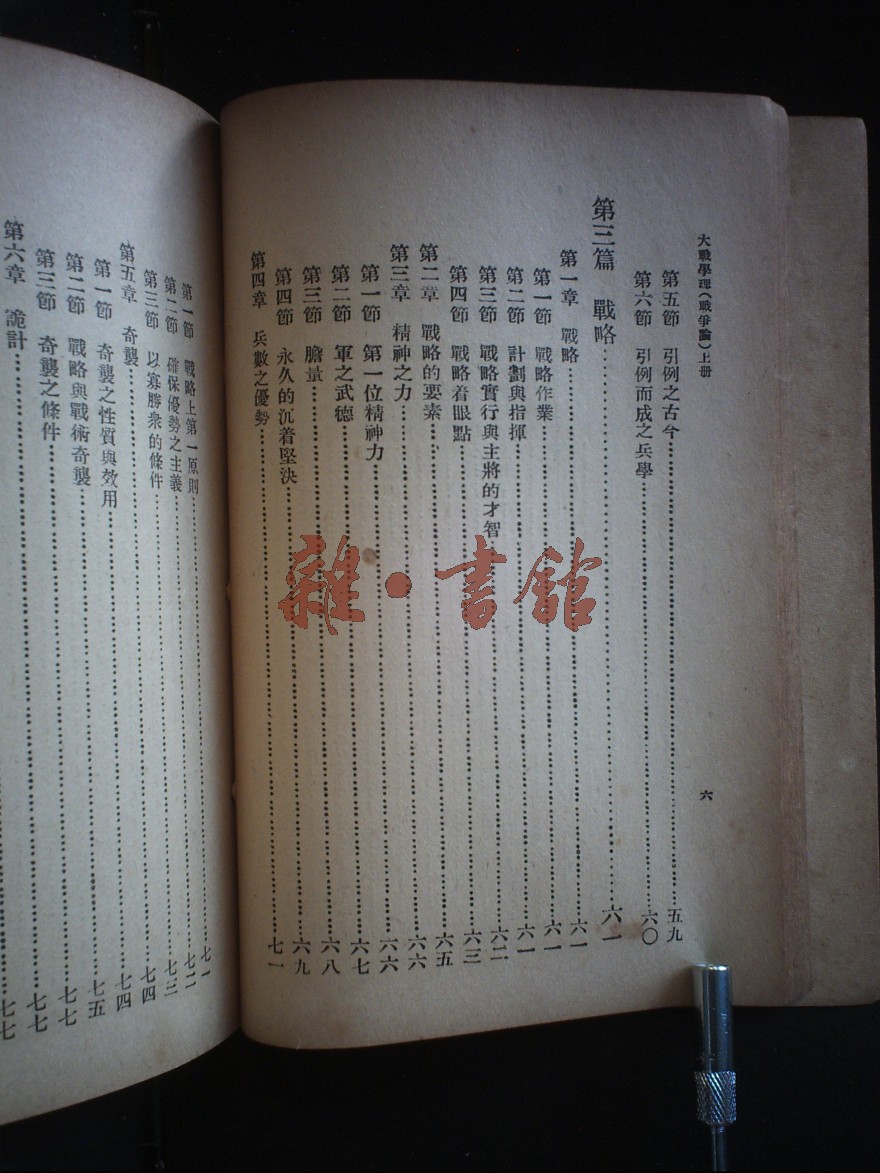 大戰學理(戰爭論)上册 六
第五節 引例之古今……五九
第六節 引例而成之兵學……六〇
第三篇 戰略……六一
第一章 戰略……六一
第一節 戰略作業……六一
第二節 計劃與指揮……六一
第三節 戰略實行與主將的才智……六二
第四節 戰略着眼點……六三
第二章 戰略的要素……六五
第三章 精神之力……六六
第一節 第一位精神力……六六
第二節 軍之武德……六七
第三節 膽量……六八
第四節 永久的沉着堅決……六九
第四章 兵數之優勢……七一
第一節 戰略上第一原則……七一
第二節 確保優勢之主義……七二
第三節 以寡勝衆的條件……七三
第五章 奇襲……七四
第一節 奇襲之性質與效用……七四
第二節 戰略與戰術奇襲……七五
第三節 奇襲之條件……七七
第六章 詭計……七七
七七
雜·書館